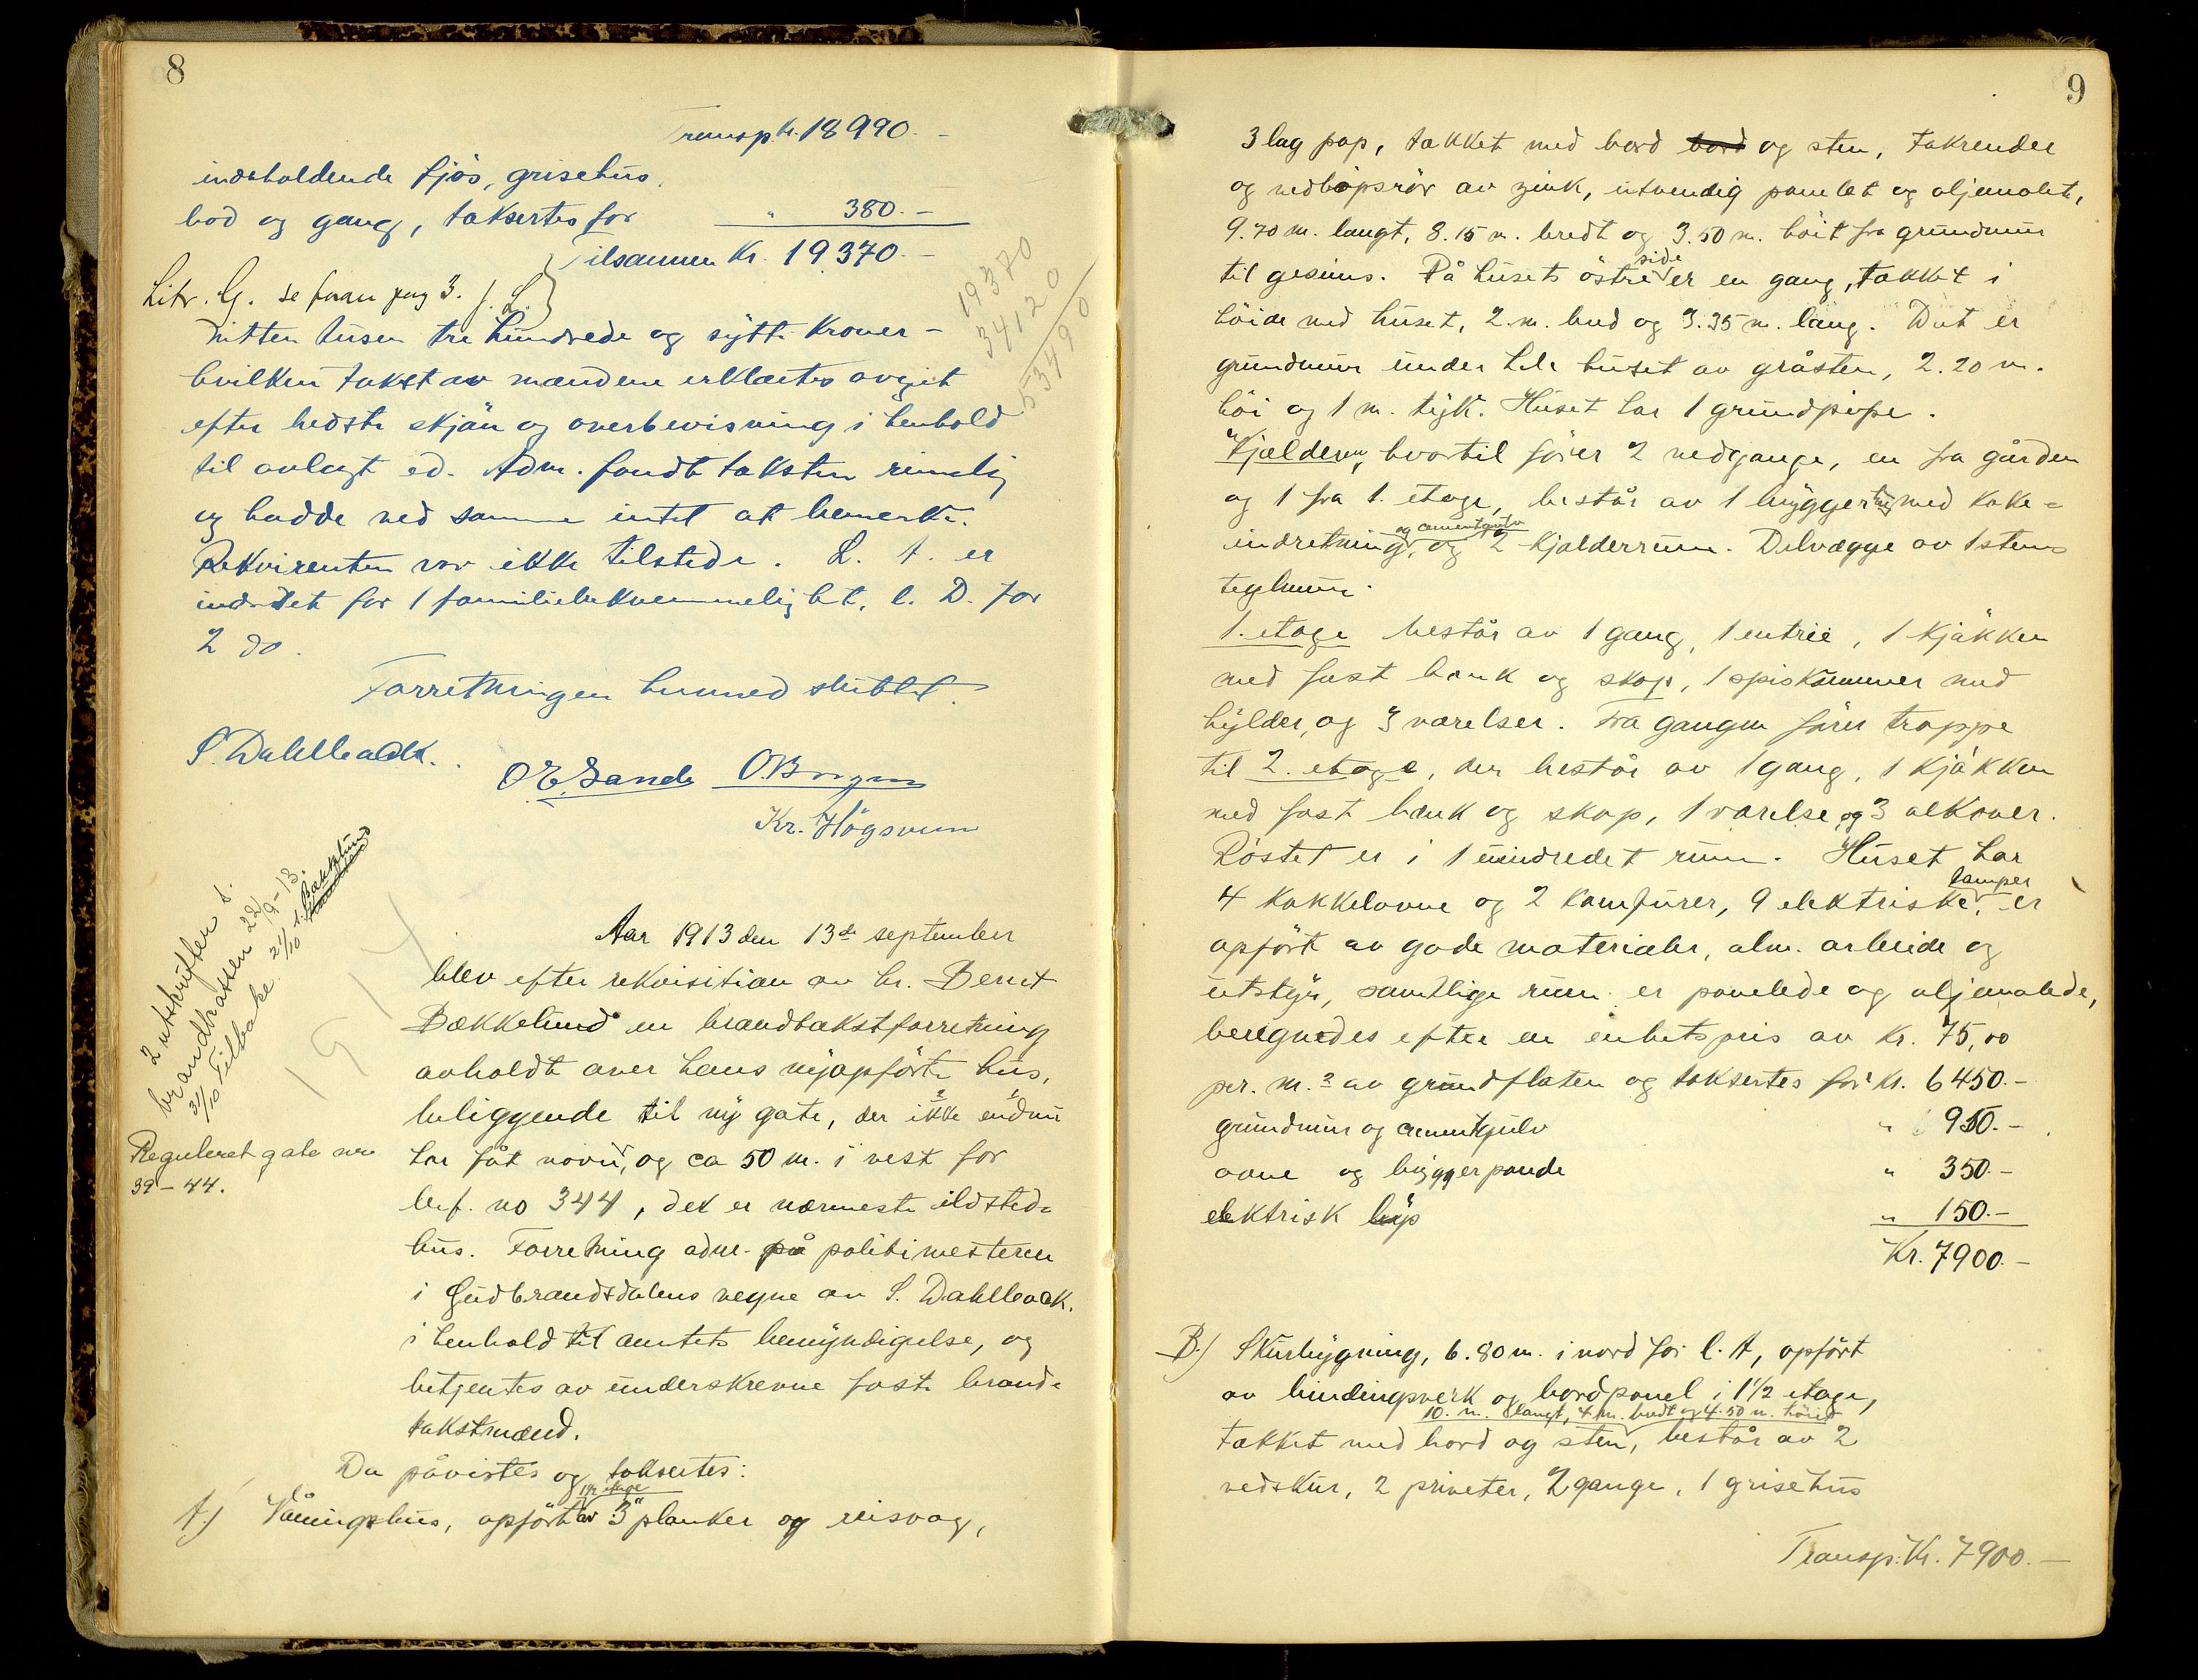 8
Transp. Kr. 18990.-
indeholdende fjös, grisehus,
bod og gang, taksertes for " 380.-
Tilsammen Kr. 19370.-
Litr. G. se foran pag 3. S. D.
nitten tusen tre hundrede og sytti kroner -
19370
34120
53490
hvilken takst av mændene erklærtes avgit
efter bedste skjön og overbevisning i henhold
til avlagt ed. Adm. fandt taksten rimelig
og hadde ved samme intet at bemerke.
Rekvirenten var ikke tilstede. L. A. er
indredet for 1 familiebekvemmelighet, l. D. for
2 do.
Forretningen hermed sluttet.
S. Dahlback.
O E. Sande O. Borgen
Kr. Högsveen
2 utskrifter s.
brandkassen 22/9-13.
31/10 Tilbake. 21/10 s. Bækkelund
1914
Aar 1913 den 13de september
blev efter rekvisition av hr. Bernt
Bækkelund en brandtakstforretning
avholdt over hans nyopförte hus,
beliggende til ny gate, der ikke endnu
Reguleret gate nr
39-44.
har fåt navn, og ca 50 m. i vest for
br.f. no 344, det er nærmeste ildsted-
hus. Forretning adm. på politimesteren
i Gudbrandsdalens vegne av S. Dahlback.
i henhold til amtets bemyndigelse, og
betjentes av underskrevne faste brand-
takstmænd.
Da påvistes og taksertes:
1½ etage
A.) Våningshus, opfört av 3" planker og reisvæg,
9
3 lag pap, tækket med bord bord og sten, takrender
og nedlöpsrör av zink, utvendig panelet og oljemalet,
9.70 m. langt, 8.15 m. bredt og 3.50 m. höit fra grundmur
side
til gesims. På husets östre er en gang, tækket i
höide med huset, 2. m. bred og 3.35 m. lang. Det er
grundmur under hele huset av gråsten, 2.20 m.
höi og 1 m. tyk. Huset har 1 grundpipe.
Kjelderen, hvortil förer 2 nedgange, en fra gården
og 1 fra 1. etage, består av 1 bryggerhus med koke-
og cementgulv
indretning, og 2 kjelderrum. Delvægge av 1 stens
teglmur.
1. etage består av 1 gang, 1 entrée, 1 kjökken
med fast bænk og skap, 1 spiskammer med
hylder, og 3 værelser. Fra gangen förer trappe
til 2. etage, der består av 1 gang, 1 kjökken
med fast bænk og skap, 1 værelse og 3 alkover.
Röstet er i 1 uindredet rum. Huset har
lamper
4 kakkelovne og 2 komfurer, 9 elektriske, er
opfört av gode materialer, alm. arbeide og
utstyr, samtlige rum er panelede og oljemalede,
beregnedes efter en enhetspris av Kr. 75,00
pr. m.² av grundflaten og taksertes for Kr. 6450.-
grundmur og cementgulv " 950.-
ovne og bryggerpande " 350.-
elektrisk lys " 150.-
Kr. 7900.-
B.) Skurbygning, 6.80 m. i nord for l. A, opfört
av bindingsverk og bordpanel i 1½ etage,
10. m. langt, 4 m. bredt og 4.50 m. höit
tækket med bord og sten, består av 2
vedskur, 2 priveter, 2 gange, 1 grisehus
Transp. Kr. 7900.-